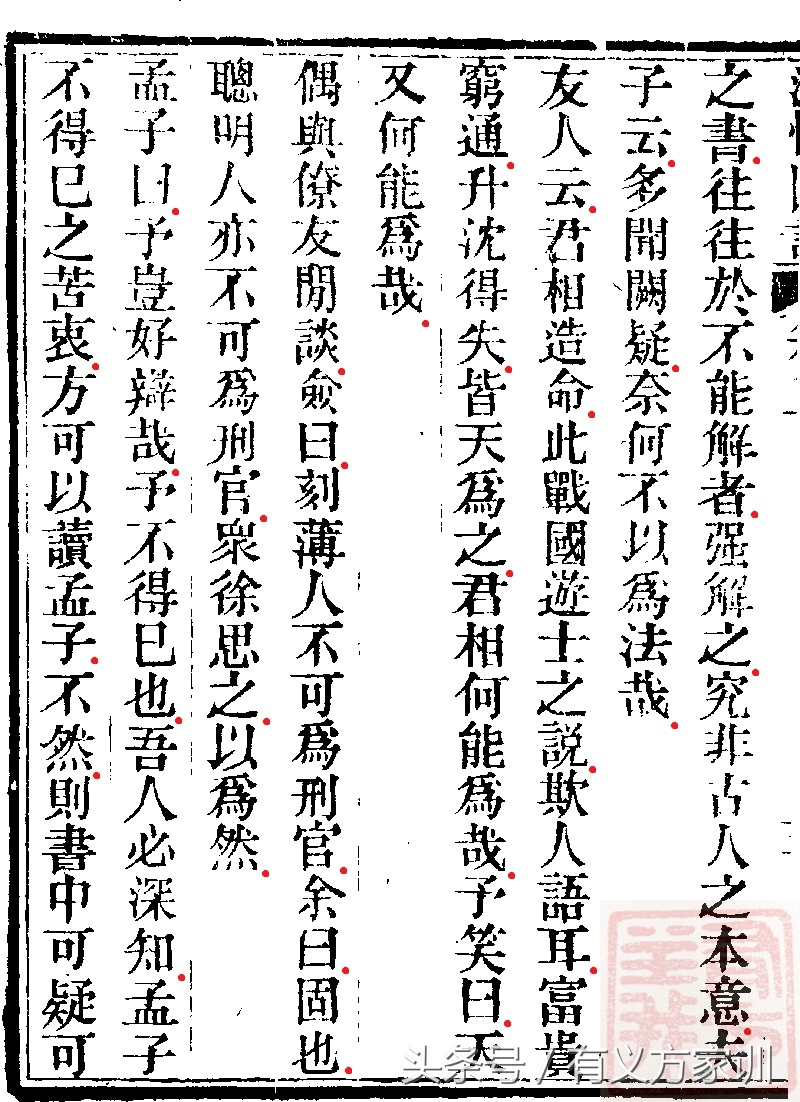 之書往往於不能解者强解之究非古人之本意夫
子云多聞闕疑奈何不以爲法哉
友人云君相造命此戰國遊士之説欺人語耳富貴
窮通升沈得失皆天爲之君相何能爲哉予笑曰天
又何能爲哉
偶與僚友閒談僉曰刻薄人不可爲刑官余曰固也
聰明人亦不可爲刑官衆徐思之以爲然
孟子曰予豈好辯哉予不得已也吾人必深知孟子
不得已之苦衷方可以讀孟子不然則書中可疑可
头条号 / 有义方家训